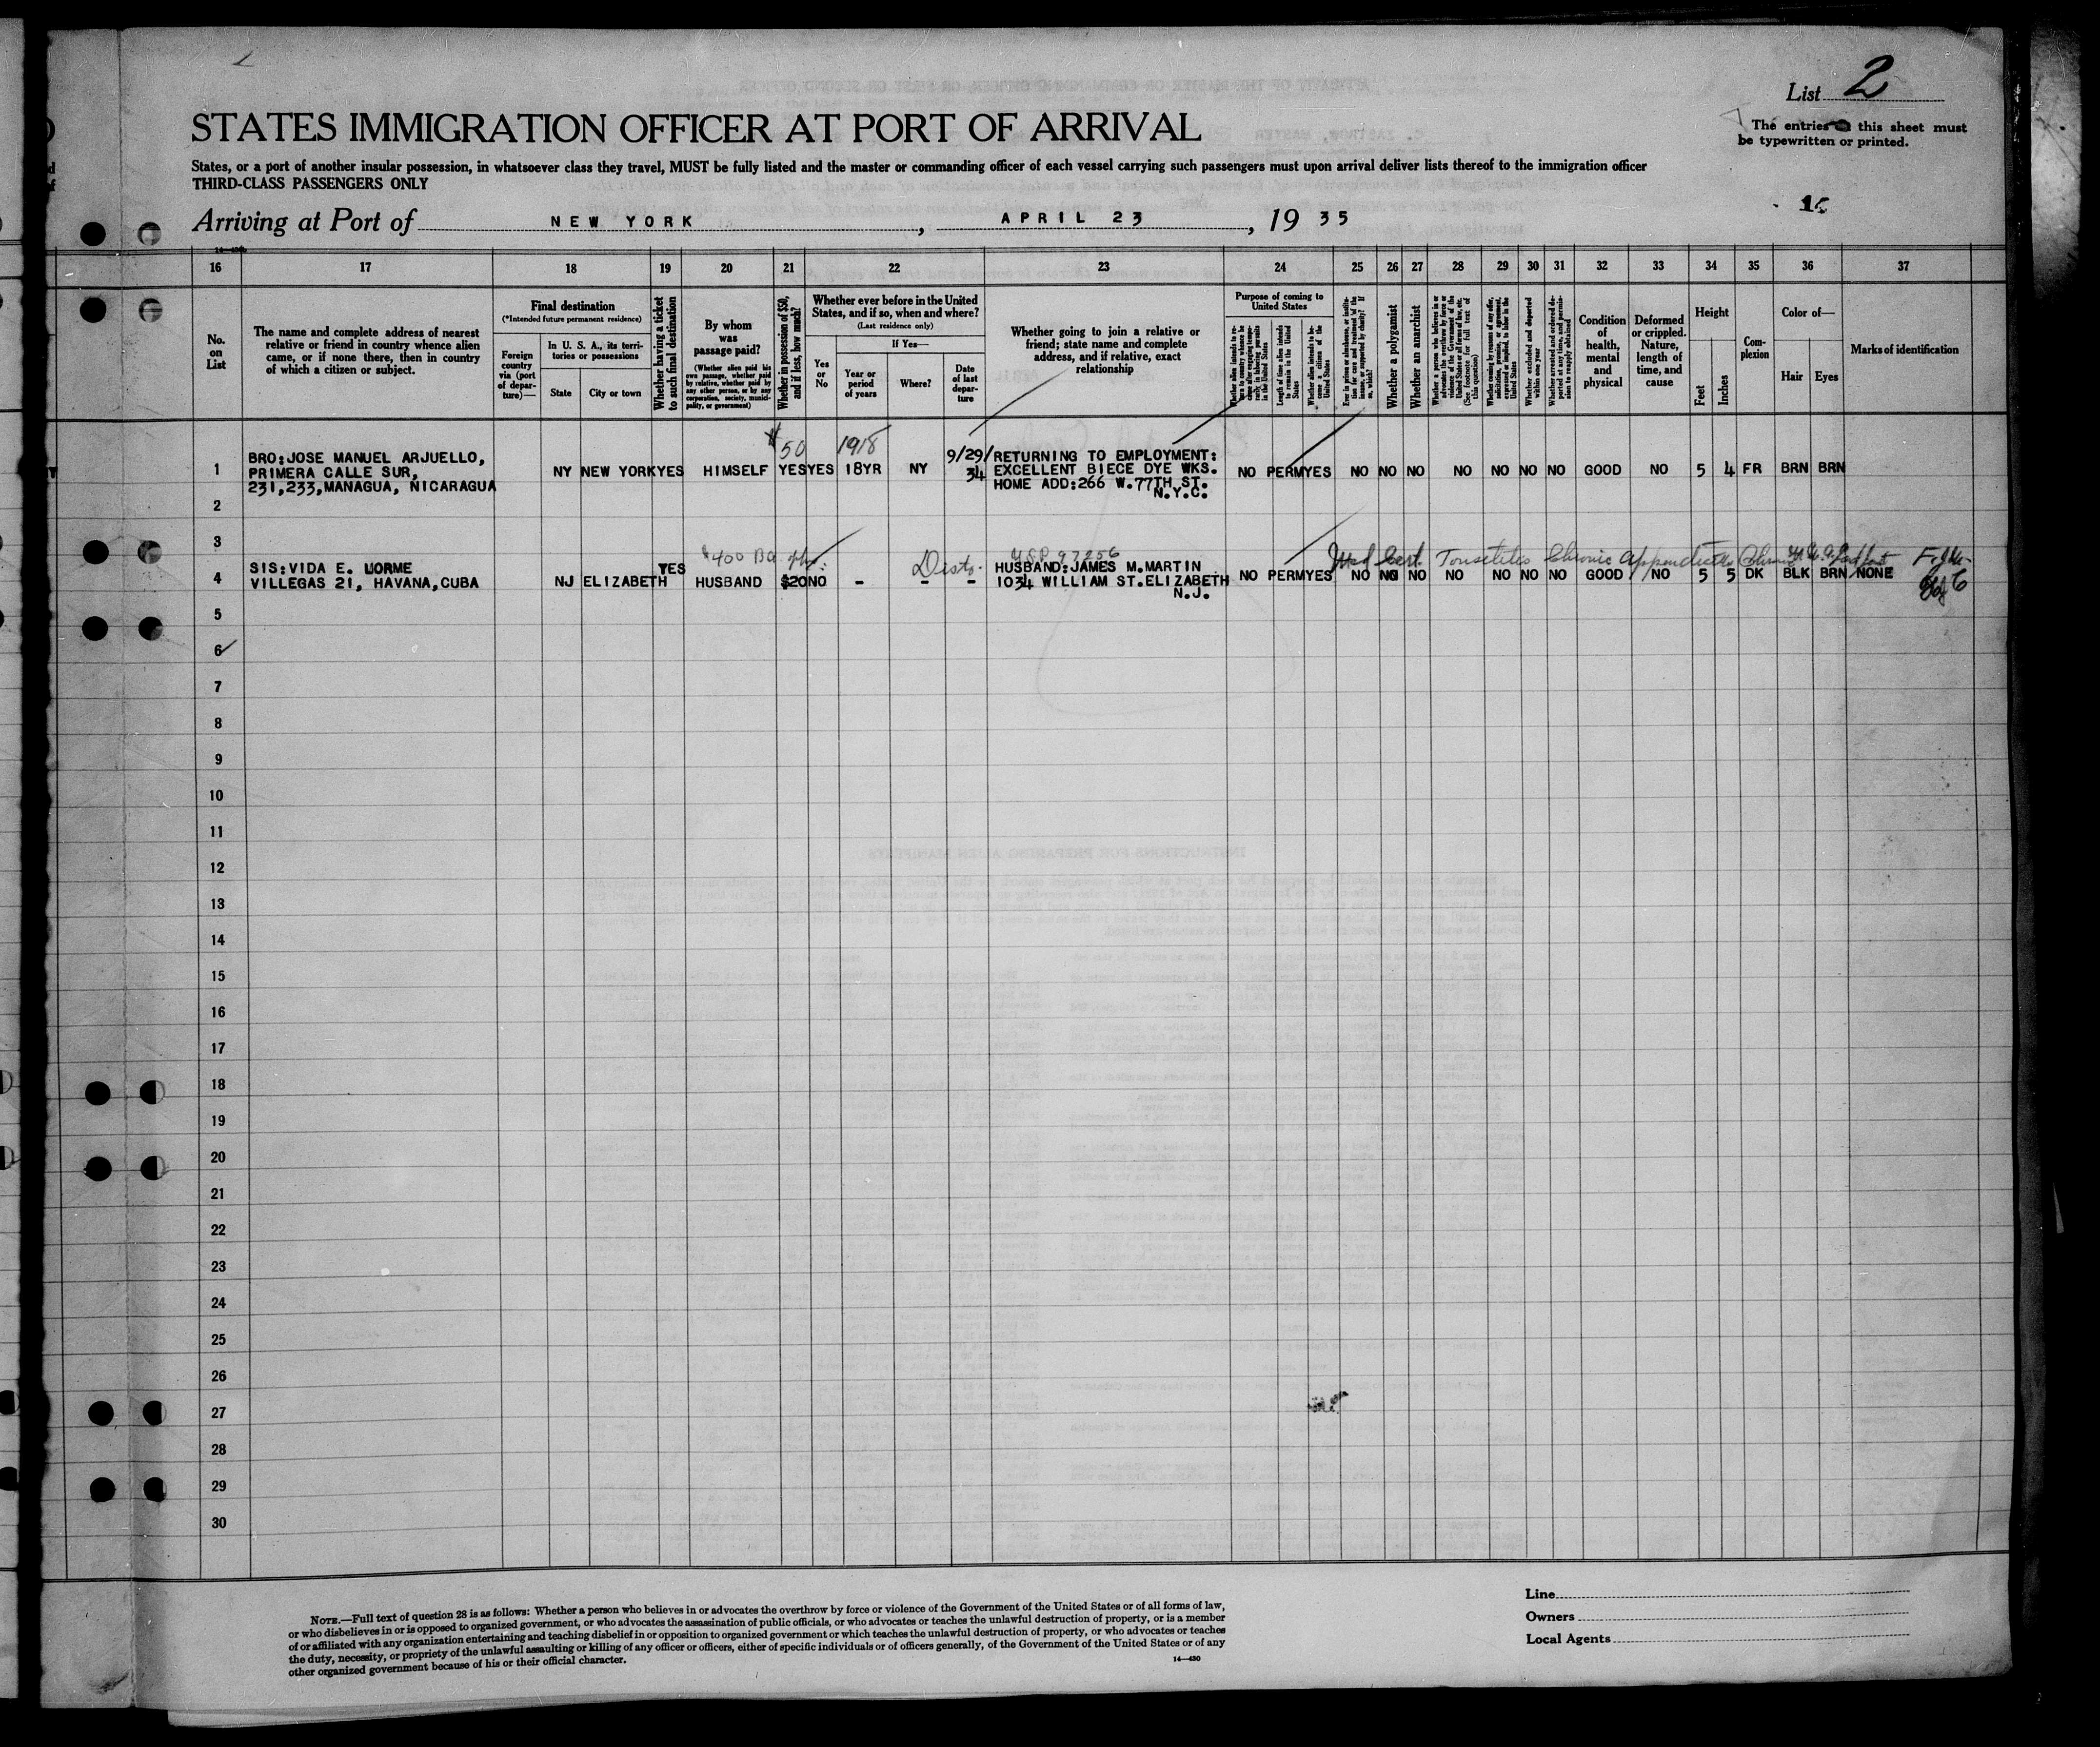 List 2
STATES IMMIGRATION OFFICER AT PORT OF ARRIVAL
The entries this sheet must
be typewritten or printed.
States, or a port of another insular possession, in whatsoever class they travel, MUST be fully listed and the master or commanding officer of each vessel carrying such passengers must upon arrival deliver lists thereof to the immigration officer
THIRD-CLASS PASSENGERS ONLY
Arriving at Port of NEW YORK, APRIL 23, 1935
16 17 18 19 20 21 22 23 24 25 26 27 28 29 30 31 32 33 34 35 36 37
No. on List
The name and complete address of nearest
relative or friend in country whence alien
came, or if none there, then in country
of which a citizen or subject.
Final destination
(*Intended future permanent residence)
Foreign country via (port of departure)—
In U. S. A., its territories or possessions
State
City or town
Whether having a ticket to such final destination
By whom was passage paid?
(Whether alien paid his own passage, whether paid by relative, whether paid by any other person, or by any corporation, society, municipality, or government)
Whether in possession of $50, and if less, how much?
Whether ever before in the United States, and if so, when and where?
(Last residence only)
Yes or No
If Yes—
Year or period of years
Where?
Date of last departure
Whether going to join a relative or
friend; state name and complete
address, and if relative, exact
relationship
Purpose of coming to United States
Length of time alien intends to remain in the United States
Whether alien intends to become a citizen of the United States
Whether a polygamist
Whether an anarchist
(See footnote for full text of this question)
Whether excluded and deported within one year
Condition of health, mental and physical
Deformed or crippled. Nature, length of time, and cause
Height
Feet
Inches
Complexion
Color of—
Hair
Eyes
Marks of identification
$50 1918
1 BRO:JOSE MANUEL ARJUELLO, PRIMERA CALLE SUR, 231,233,MANAGUA, NICARAGUA NY NEW YORK YES HIMSELF YES YES 18YR NY 9/29/34 RETURNING TO EMPLOYMENT: EXCELLENT BIECE DYE WKS. HOME ADD:266 W.77TH ST. N.Y.C. NO PERM YES NO NO NO NO NO NO NO GOOD NO 5 4 FR BRN BRN
2
3
$400
Med Cert Tonsilitis Chronic Appendicitis Chronic
4 SIS:VIDA E. LORME VILLEGAS 21, HAVANA,CUBA NJ ELIZABETH YES HUSBAND $20 NO - - - HUSBAND:JAMES M.MARTIN 1034 WILLIAM ST.ELIZABETH N.J. NO PERM YES NO NO NO NO NO NO NO GOOD NO 5 5 DK BLK BRN NONE
5
6
7
8
9
10
11
12
13
14
15
16
17
18
19
20
21
22
23
24
25
26
27
28
29
30
NOTE.—Full text of question 28 is as follows: Whether a person who believes in or advocates the overthrow by force or violence of the Government of the United States or of all forms of law,
or who disbelieves in or is opposed to organized government, or who advocates the assassination of public officials, or who advocates or teaches the unlawful destruction of property, or is a member
of or affiliated with any organization entertaining and teaching disbelief in or opposition to organized government or which teaches the unlawful destruction of property, or who advocates or teaches
the duty, necessity, or propriety of the unlawful assaulting or killing of any officer or officers, either of specific individuals or of officers generally, of the Government of the United States or of any
other organized government because of his or their official character.
14—430
Line
Owners
Local Agents